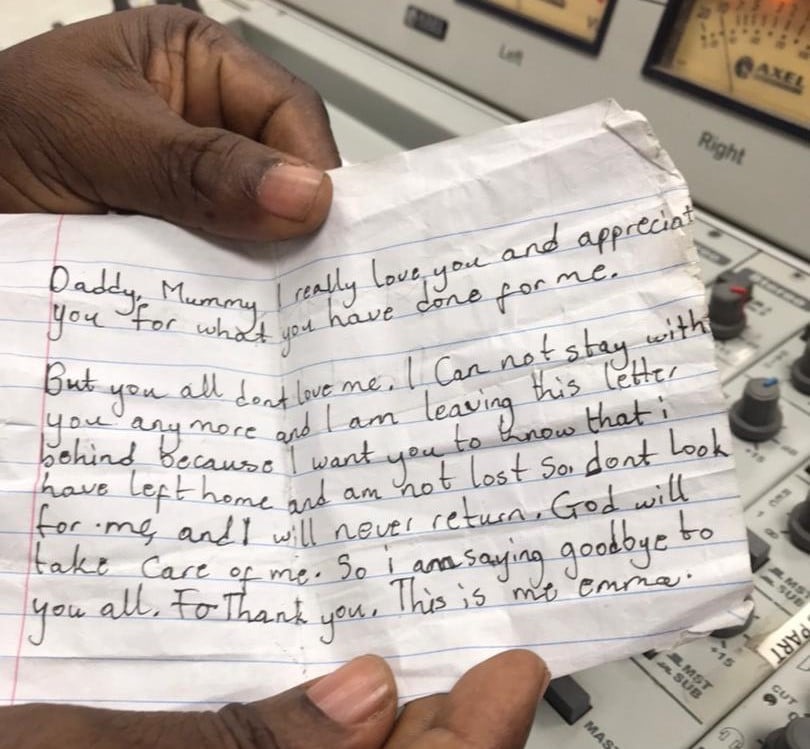 Left
AXEL
Right
Daddy, Mummy, I really love you and appreciat
you for what you have done for me.
But you all dont love me. I Can not stay with
you anymore and I am leaving this letter
behind because I want you to know that i
have left home and am not lost so. dont Look
for me, and I will never return. God will
take Care of me. So i am saying goodbye to
you all. Fo Thank you. This is me emma.
+15
MST
SUB
+15
PART
CUT
MST
SUB